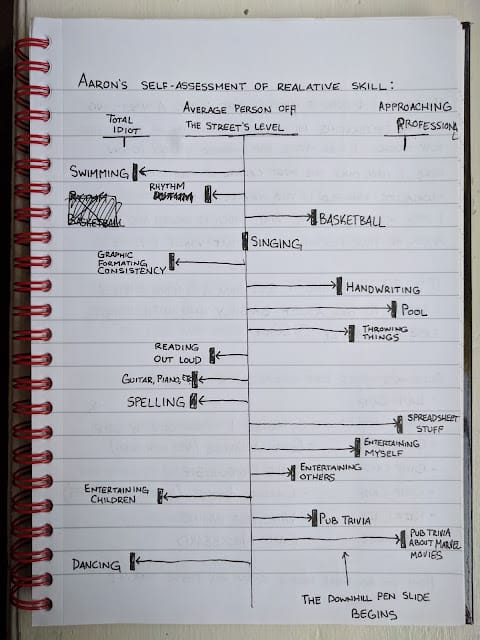 AARON'S SELF-ASSESSMENT OF REALATIVE SKILL:
TOTAL
IDIOT
AVERAGE PERSON OFF
THE STREET'S LEVEL
APPROACHING
PROFESSIONAL
SWIMMING
RHYTHM
BASKETBALL
BASKETBALL
SINGING
GRAPHIC
FORMATING
CONSISTENCY
HANDWRITING
POOL
THROWING
THINGS
READING
OUT LOUD
GUITAR, PIANO, ETC
SPELLING
SPREADSHEET
STUFF
ENTERTAINING
MYSELF
ENTERTAINING
OTHERS
ENTERTAINING
CHILDREN
PUB TRIVIA
PUB TRIVIA
ABOUT MARVEL
MOVIES
DANCING
THE DOWNHILL PEN SLIDE
BEGINS